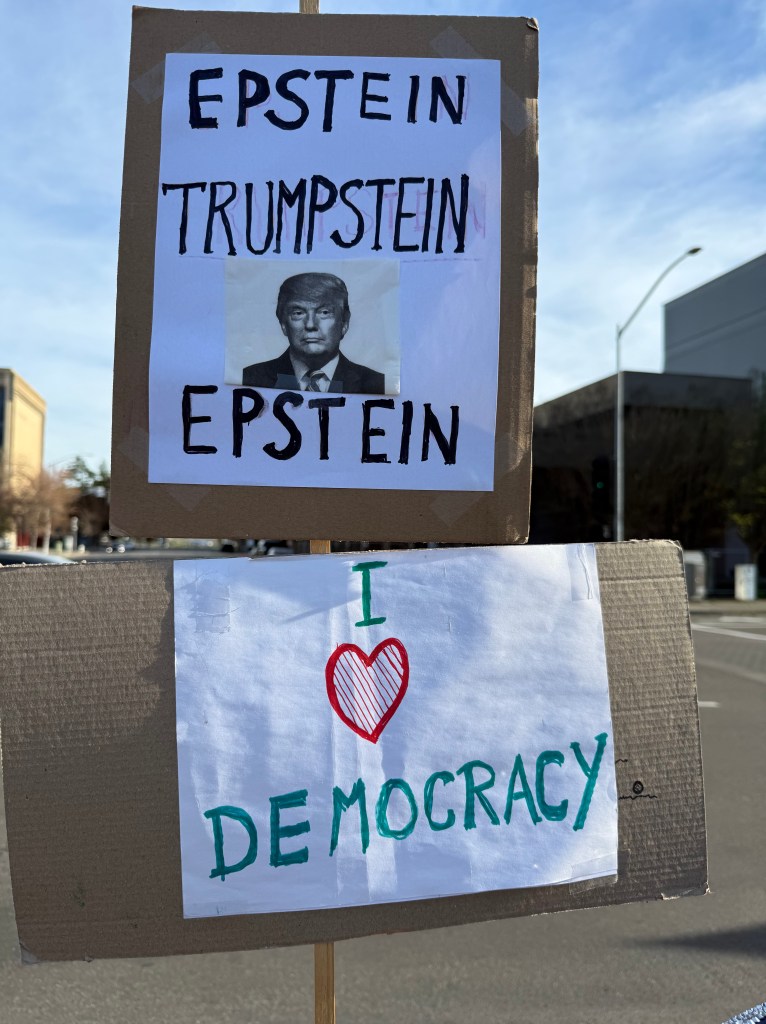 EPSTEIN
TRUMPSTEIN
EPSTEIN
I
DEMOCRACY